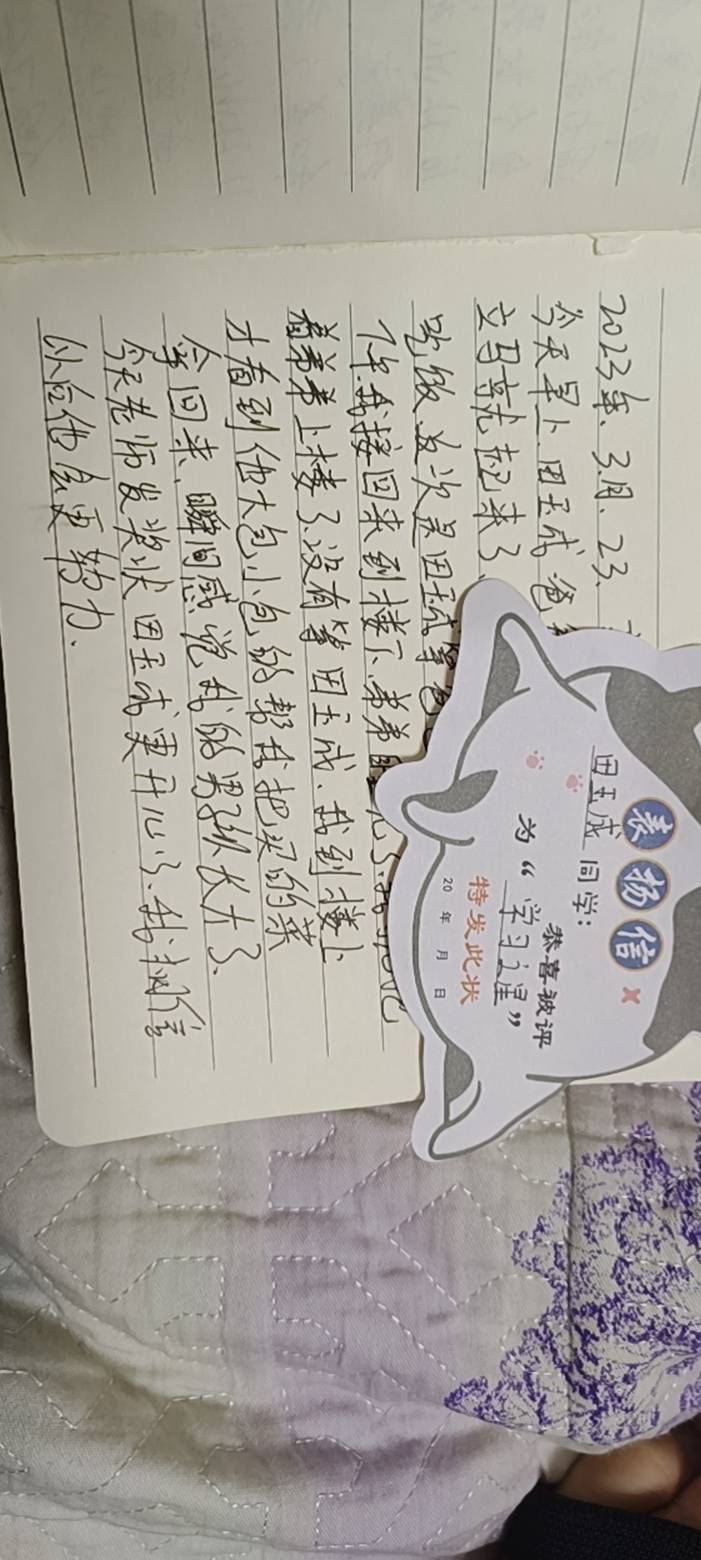 2023年、3月、23、
今天早上田玉成爸爸
立马就起来了、
吃饭这次是田玉成等爸
下午我接回来到楼下、弟弟
着弟弟上楼了.没有等田玉成、我到楼上
才看到他大包小包的帮我把买的菜
拿回来、瞬间感觉我的男子汉长大了、
今天老师发奖状田玉成更开心了、我相信
以后他会更努力.
表扬信
田玉成 同学:
恭喜被评
为“学习之星”
特发此状
20 年 月 日